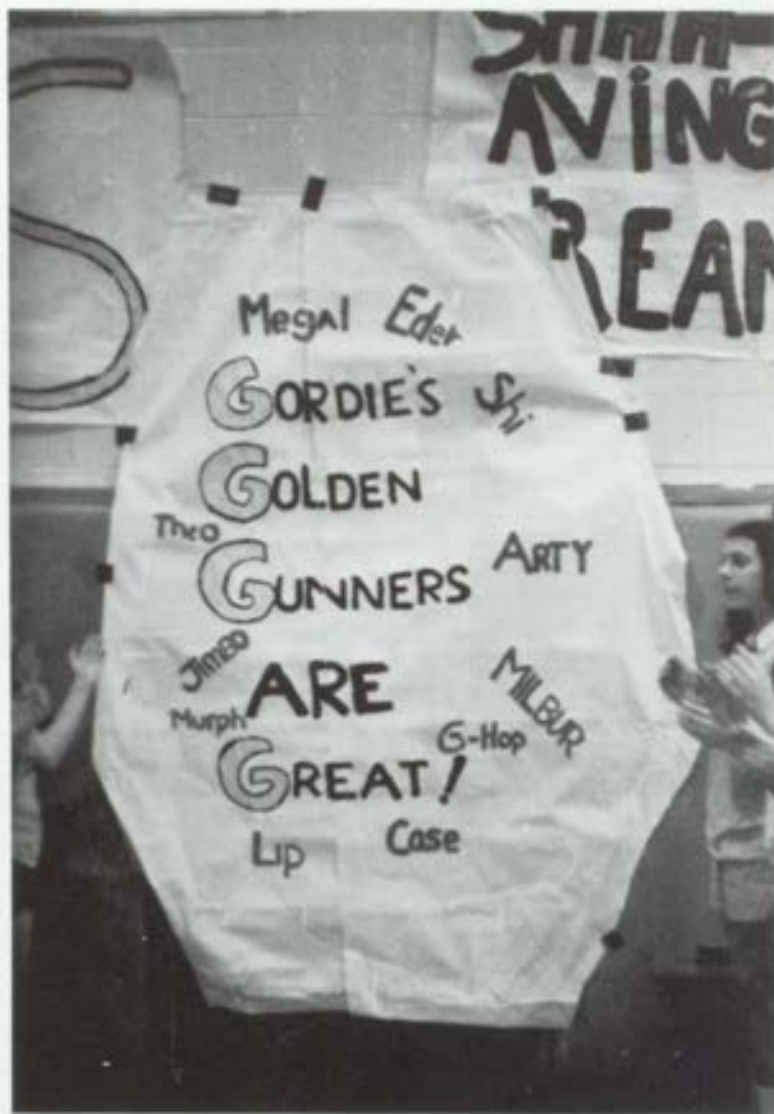 S
AVING
REAM
Megal Eder
GORDIE'S Shi
GOLDEN
Theo
GUNNERS ARTY
Jimbo
ARE
MILBUR
Murph
G-Hop
GREAT!
Lip Case